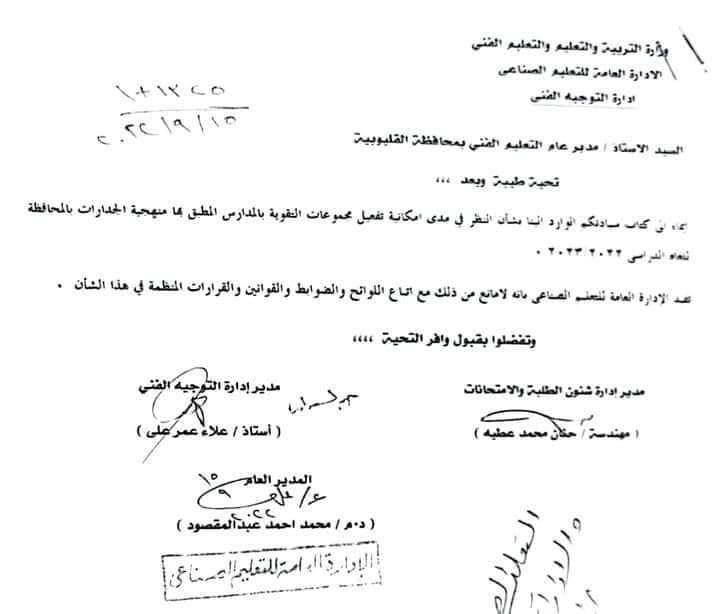 وزارة التربية والتعليم والتعليم الفني
الادارة العامة للتعليم الصناعى
ادارة التوجيه الفنى
١+١٣٢٥
٢٠٢٢/٩/١٥
السيد الاستاذ / مدير عام التعليم الفني بمحافظة القليوبية
تحية طيبة وبعد ،،،
إيماء الى كتاب سيادتكم الوارد الينا بشأن النظر في مدى امكانية تفعيل مجموعات التقوية بالمدارس المطبق بها منهجية الجدارات بالمحافظة
للعام الدراسى ٢٠٢٣/٢٠٢٢ .
تفيد الادارة العامة للتعليم الصناعى بانه لامانع من ذلك مع اتباع اللوائح والضوابط والقوانين والقرارات المنظمة في هذا الشأن .
وتفضلوا بقبول وافر التحية ،،،،
مدير إدارة شئون الطلبة والامتحانات
مدير إدارة التوجيه الفني
( مهندسة / حنان محمد عطيه )
( أستاذ / علاء عمر على )
المدير العام
١٥
٩
٢٠٢٢
( د.م / محمد احمد عبدالمقصود )
الإدارة العامة للتعليم الصناعى